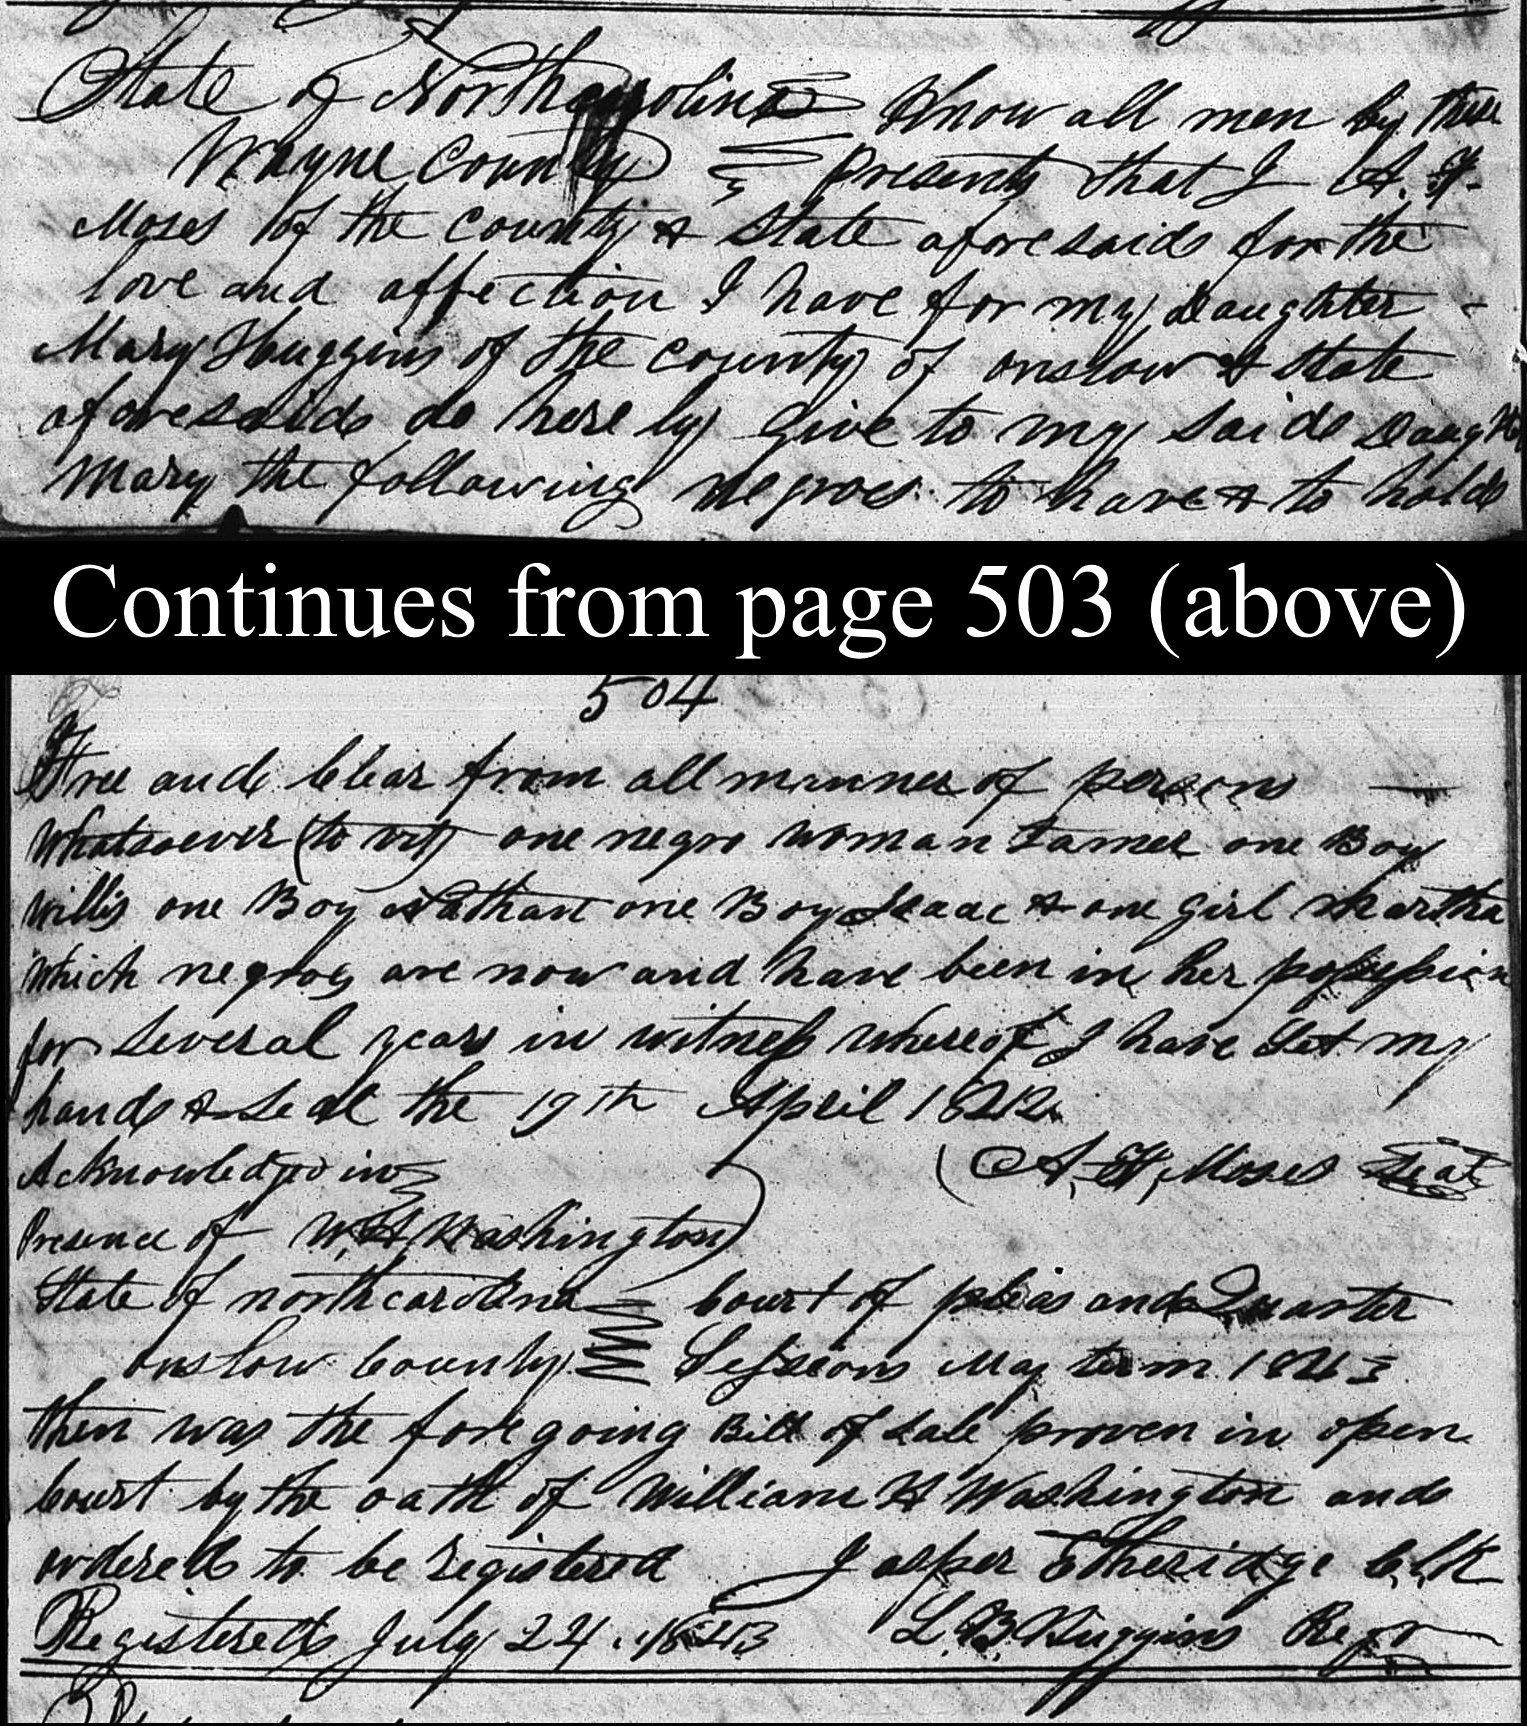 State of Northcarolina Know all men by these
Wayne County presents that I A. F.
Moses of the County & State aforesaid for the
love and affection I have for my Daughter
Mary Huggins of the county of onslow & State
aforesaid do here by give to my said Daughter
Mary the following negroes to have & to hold
Continues from page 503 (above)
504
Free and Clear from all manner of persons
whatsoever (to wit) one negro woman Tamer one Boy
willis one Boy Nathan one Boy Isaac & one girl Martha
which negros are now and have been in her possession
for several years in witness whereof I have set my
hand & seal the 19th April 1842
Acknowledged in A. Moses Seal
Presence of W. H Washington
State of northcarolina Court of pleas and Quarter
onslow County Sessions May term 1843
then was the fore going Bill of sale proven in open
Court by the oath of William H Washington and
ordered to be registered Jasper Etheridge Clk
Registered July 24. 1843 L. B. Huggins Regr